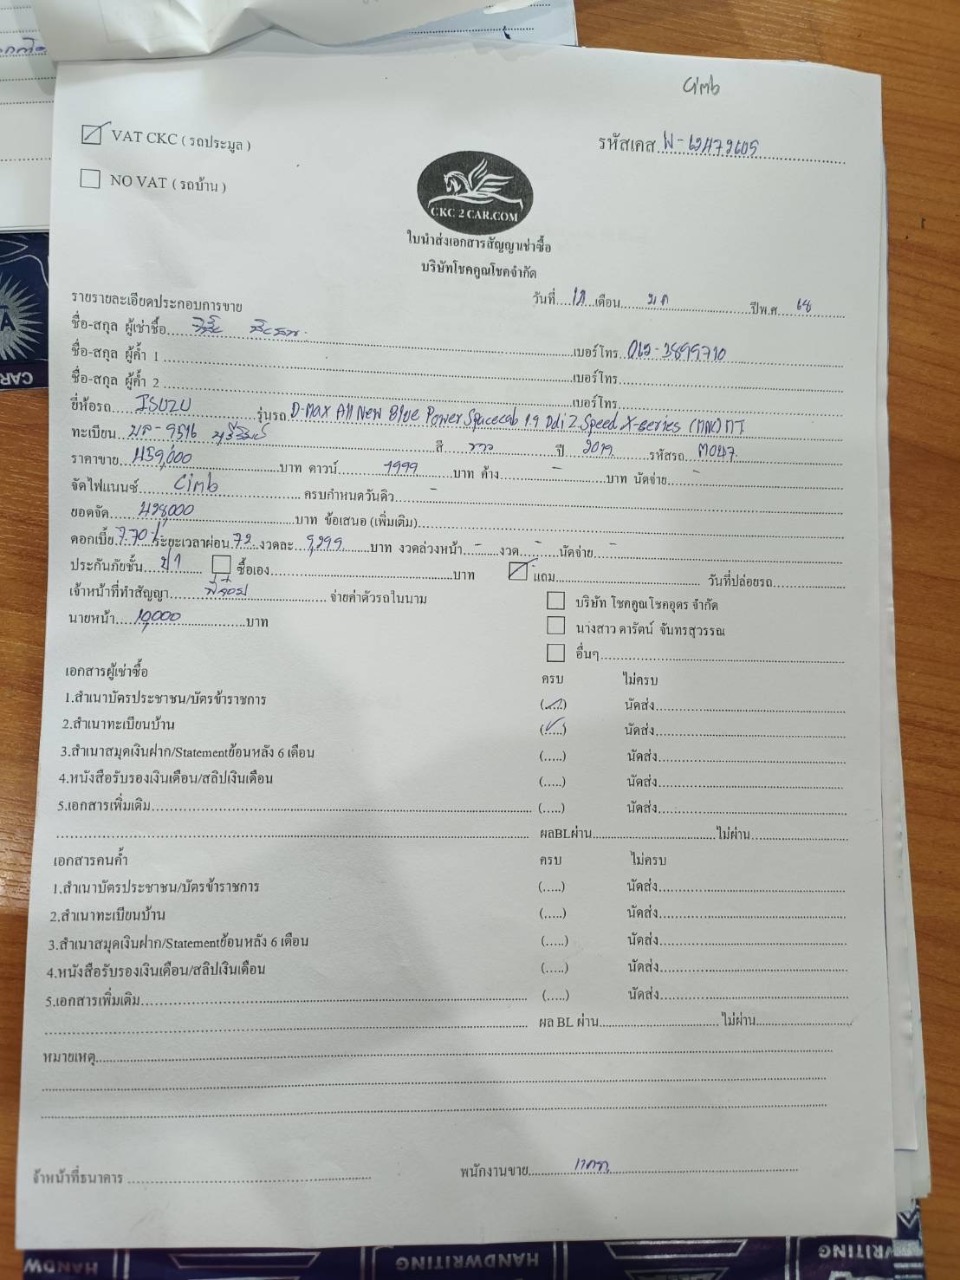 Cimb
VAT CKC ( รถประมูล )
รหัสเคส
NO VAT ( รถบ้าน )
CKC 2 CAR.COM
ใบนำส่งเอกสารสัญญาเช่าซื้อ
บริษัทโชคคูณโชคจำกัด
วันที่ เดือน ปีพ.ศ. 68
รายรายละเอียดประกอบการขาย
ชื่อ-สกุล ผู้เช่าซื้อ เบอร์โทร
ชื่อ-สกุล ผู้ค้ำ 1 เบอร์โทร
ชื่อ-สกุล ผู้ค้ำ 2 เบอร์โทร
ยี่ห้อรถ ISUZU รุ่นรถ D-max All New Blue Power Spacecab 1.9 Ddi Z Speed X-series (MNK) MT
ทะเบียน สี ขาว ปี 2019 รหัสรถ M047
ราคาขาย 459,000 บาท ดาวน์ 1999 บาท ค้าง - บาท นัดจ่าย -
จัดไฟแนนซ์ Cimb ครบกำหนดวันดิว -
ยอดจัด 428,000 บาท ข้อเสนอ (เพิ่มเติม)
ดอกเบี้ย 7.70 ระยะเวลาผ่อน 72 งวดละ 9,299 บาท งวดล่วงหน้า - งวด - นัดจ่าย -
ประกันภัยชั้น ป1 ซื้อเอง บาท แถม วันที่ปล่อยรถ
เจ้าหน้าที่ทำสัญญา จ่ายค่าตัวรถในนาม บริษัท โชคคูณโชคอุดร จำกัด
นายหน้า 10,000 บาท นางสาว ดารัตน์ จันทรสุวรรณ
อื่นๆ
เอกสารผู้เช่าซื้อ ครบ ไม่ครบ
1.สำเนาบัตรประชาชน/บัตรข้าราชการ (.....) นัดส่ง
2.สำเนาทะเบียนบ้าน (.....) นัดส่ง
3.สำเนาสมุดเงินฝาก/Statementย้อนหลัง 6 เดือน (.....) นัดส่ง
4.หนังสือรับรองเงินเดือน/สลิปเงินเดือน (.....) นัดส่ง
5.เอกสารเพิ่มเติม (.....) นัดส่ง
ผลBLผ่าน ไม่ผ่าน
เอกสารคนค้ำ ครบ ไม่ครบ
1.สำเนาบัตรประชาชน/บัตรข้าราชการ (.....) นัดส่ง
2.สำเนาทะเบียนบ้าน (.....) นัดส่ง
3.สำเนาสมุดเงินฝาก/Statementย้อนหลัง 6 เดือน (.....) นัดส่ง
4.หนังสือรับรองเงินเดือน/สลิปเงินเดือน (.....) นัดส่ง
5.เอกสารเพิ่มเติม (.....) นัดส่ง
ผล BL ผ่าน ไม่ผ่าน
หมายเหตุ
จ้าหน้าที่ธนาคาร พนักงานขาย
HANDWRITING